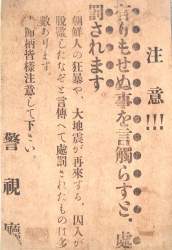 注意!!!
有りもせぬ事を言觸らすと、處
罰されます
朝鮮人の狂暴や、大地震が再來する、囚人が
脱監したなぞと言傳へて處罰されたものは多
數あります。
時節柄皆樣注意して下さい
警視廳